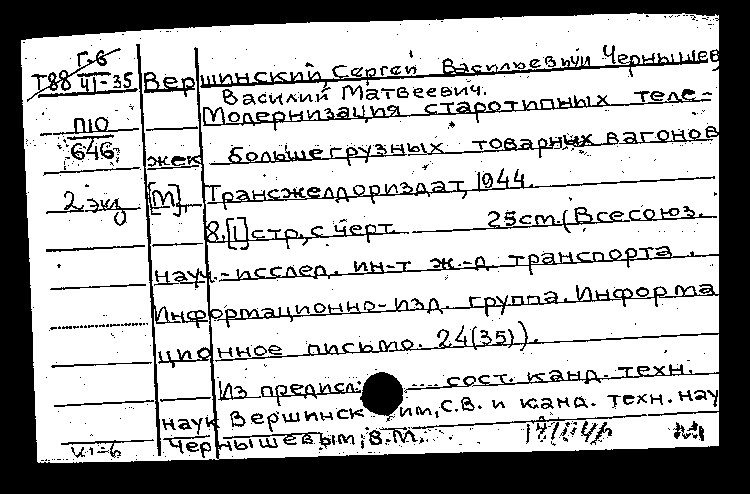 Г-6
Т88 VI-35
Вершинский, Сергей Васильевич и Чернышев,
Василий Матвеевич.
П10
646
Модернизация старотипных теле-
жек большегрузных товарных вагонов
2 экз
[М], Трансжелдориздат, 1944.
8,[1] стр, с черт. 25cm. (Всесоюз.
науч.-исслед. ин-т ж.-д транспорта.
Информационно-изд. группа. Информа
ционное письмо. 24(35)).
Из предисл: сост. канд. техн.
наук Вершинск им, С.В. и канд. техн. нау
Чернышевым, В.М.
VI-6